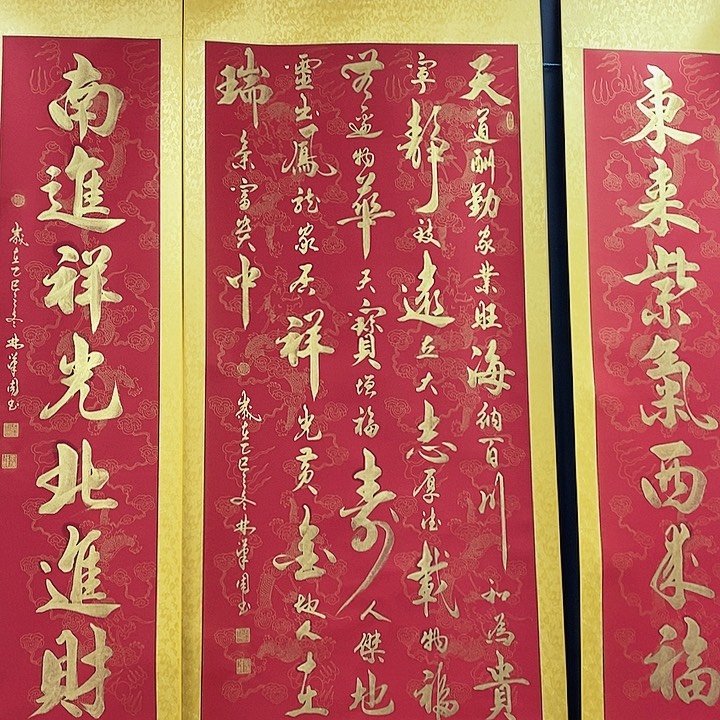 東来紫氣西来福
天道酬勤家業旺海納百川和為貴
寧靜致遠立大志厚德載物福
無邊物華天寶增福壽人傑地
靈出鳳龍家居祥光黄金地人在
瑞富贵中
歲在乙巳之冬林書
南進祥光北進財
歲在乙巳之冬林書